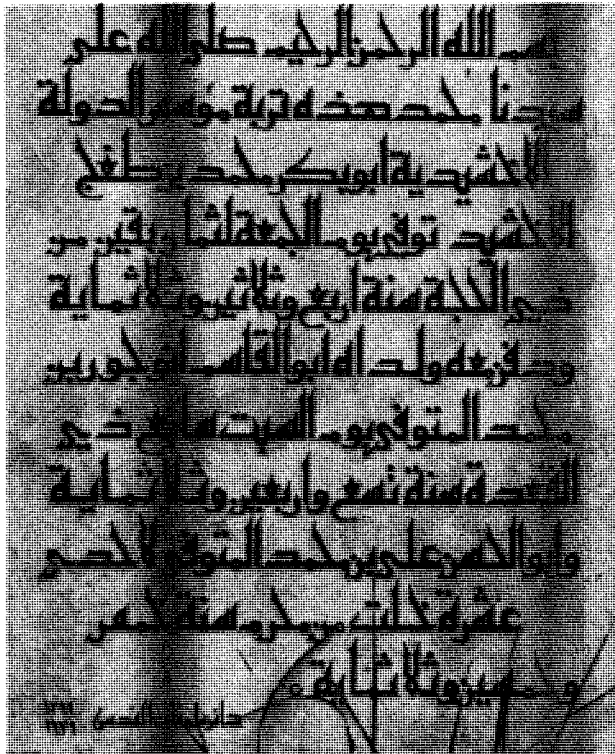 بسم الله الرحمن الرحيم صلى الله على
سيدنا محمد هذه تربة مؤسس الدولة
الاخشيدية ابو بكر محمد بن طغج
الاخشيد توفي يوم الجمعة لثمان بقين من
ذي الحجة سنة اربع وثلاثين وثلاثماية
ودفن معه ولداه ابو القاسم انوجور بن
محمد المتوفي يوم السبت سابع ذي
القعدة سنة تسع واربعين وثلاثماية
وابو الحسن علي بن محمد المتوفي لاحدى
عشرة خلت من محرم سنة خمس
وخمسين وثلاثماية